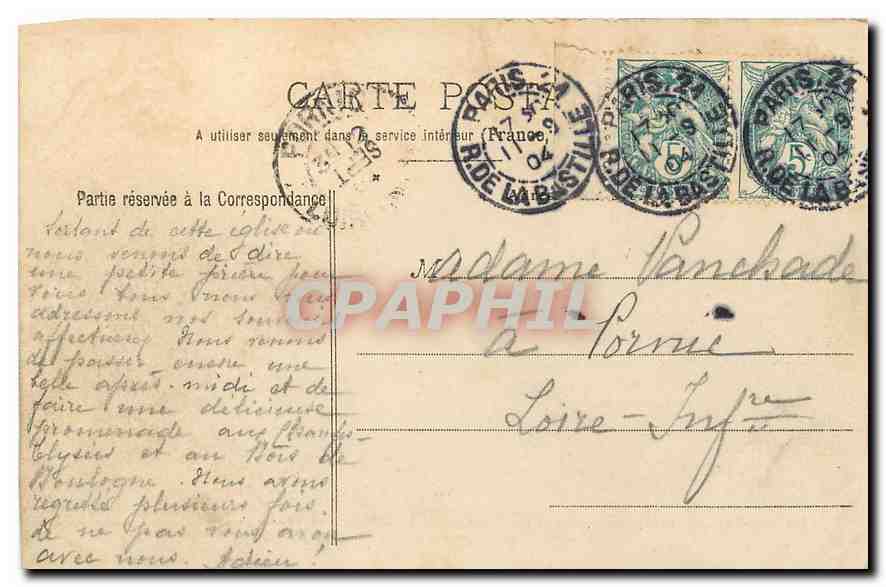 CARTE POSTA
A utiliser seulement dans le service intérieur (France,
PARIS. 21
17 11 9 04
R. DE LA BASTILLE
PARIS. 21
17 11 9 04
R. DE LA BASTILLE
PARIS. 21
17 11 9 04
R. DE LA BA
5
5
12 SEPT
Partie réservée à la Correspondance
Sortant de cette église où
nous venons de dire
une petite prière pour
vous tous nous vous
adressons nos
affectueux Nous venons
de passer encore une
belle après-midi et de
faire une délicieuse
promenade aux Champs-
Elysées et au Bois de
Boulogne. Nous avons
regretté plusieurs fois
de ne pas vous avoir
avec nous. Adieu!
Madame Panchade
à Pornic
Loire-Infre
CPAPHIL